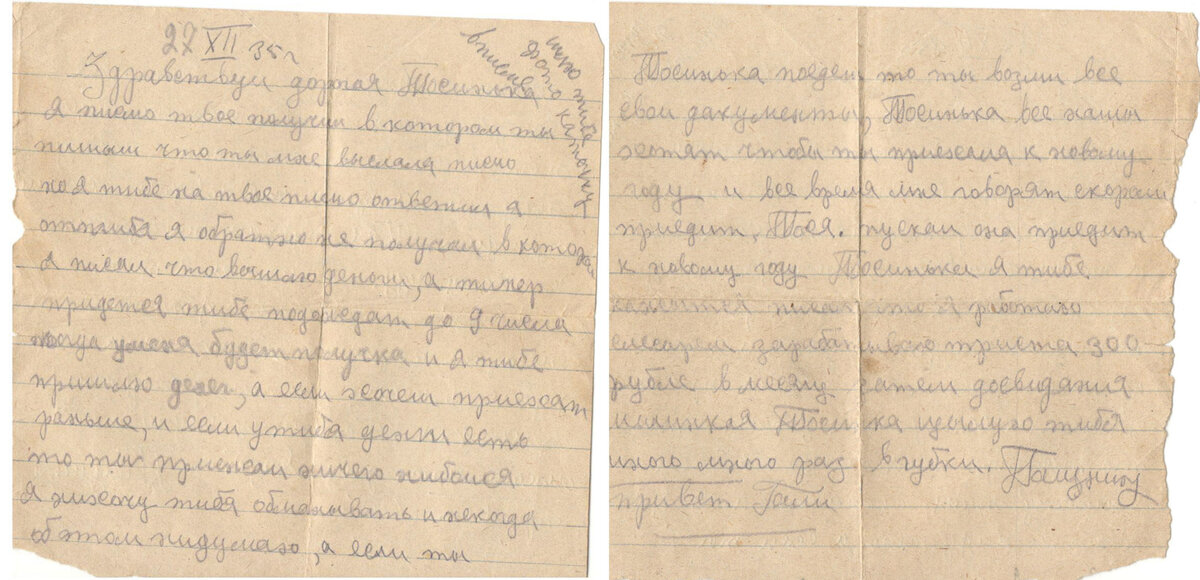 27 XII 35 г
Здравствуй дорогая Тосинька
я писмо твое получил в котором ты
пишыш что ты мне выслала писмо
но я тибе на твое писмо ответил а
оттибя я обратно не получал в котором
я писал что вышлю деньги, а типер
придется тибе подождат до 9 числа
тогда уменя будет получка и я тибе
пришлю денег, а если хочеш приехат
раньше, и если утибя денги есть
то ты приежаи ничего нибоися
я нихочу тибя обманывать и некогда
обэтом нидумаю, а если ты
шлю тибе
фото карточку
вписме
Тосинька поедеш то ты возми все
свои дакументы, Тосинька все нашы
хотят чтобы ты приехала к новому
году и все время мне говорят скораи
приедит. Тося. пускаи она приедит
к новому году Тосинька я тибе
кажытся писал что я работаю
слесарем зарабатываю триста 300
рубле в месяц затем досвидания
милинкая Тосинька цылую тибя
много много раз в губки.
привет Гали